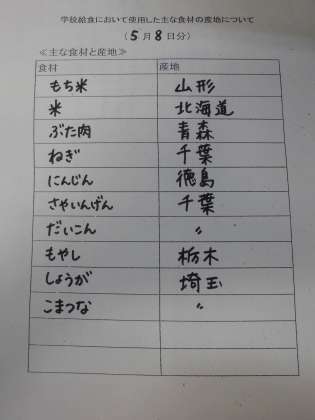 学校給食において使用した主な食材の産地について
(5月8日分)
≪主な食材と産地≫
食材 産地
もち米 山形
米 北海道
ぶた肉 青森
ねぎ 千葉
にんじん 徳島
さやいんげん 千葉
だいこん 〃
もやし 栃木
しょうが 埼玉
こまつな 〃